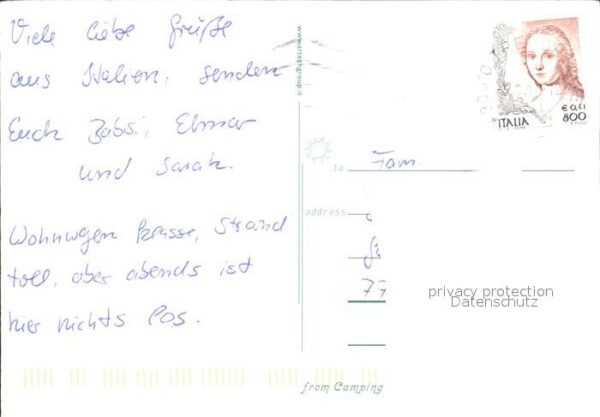 Viele liebe Grüße
aus Italien, senden
Euch Babsi, Elmar
und Sarah.
Wohnwagen klasse, Strand
toll, aber abends ist
hier nichts los.
www.artephgroup.it
€ 0,41
ITALIA 800
to Fam
address
77
from Camping
privacy protection
Datenschutz